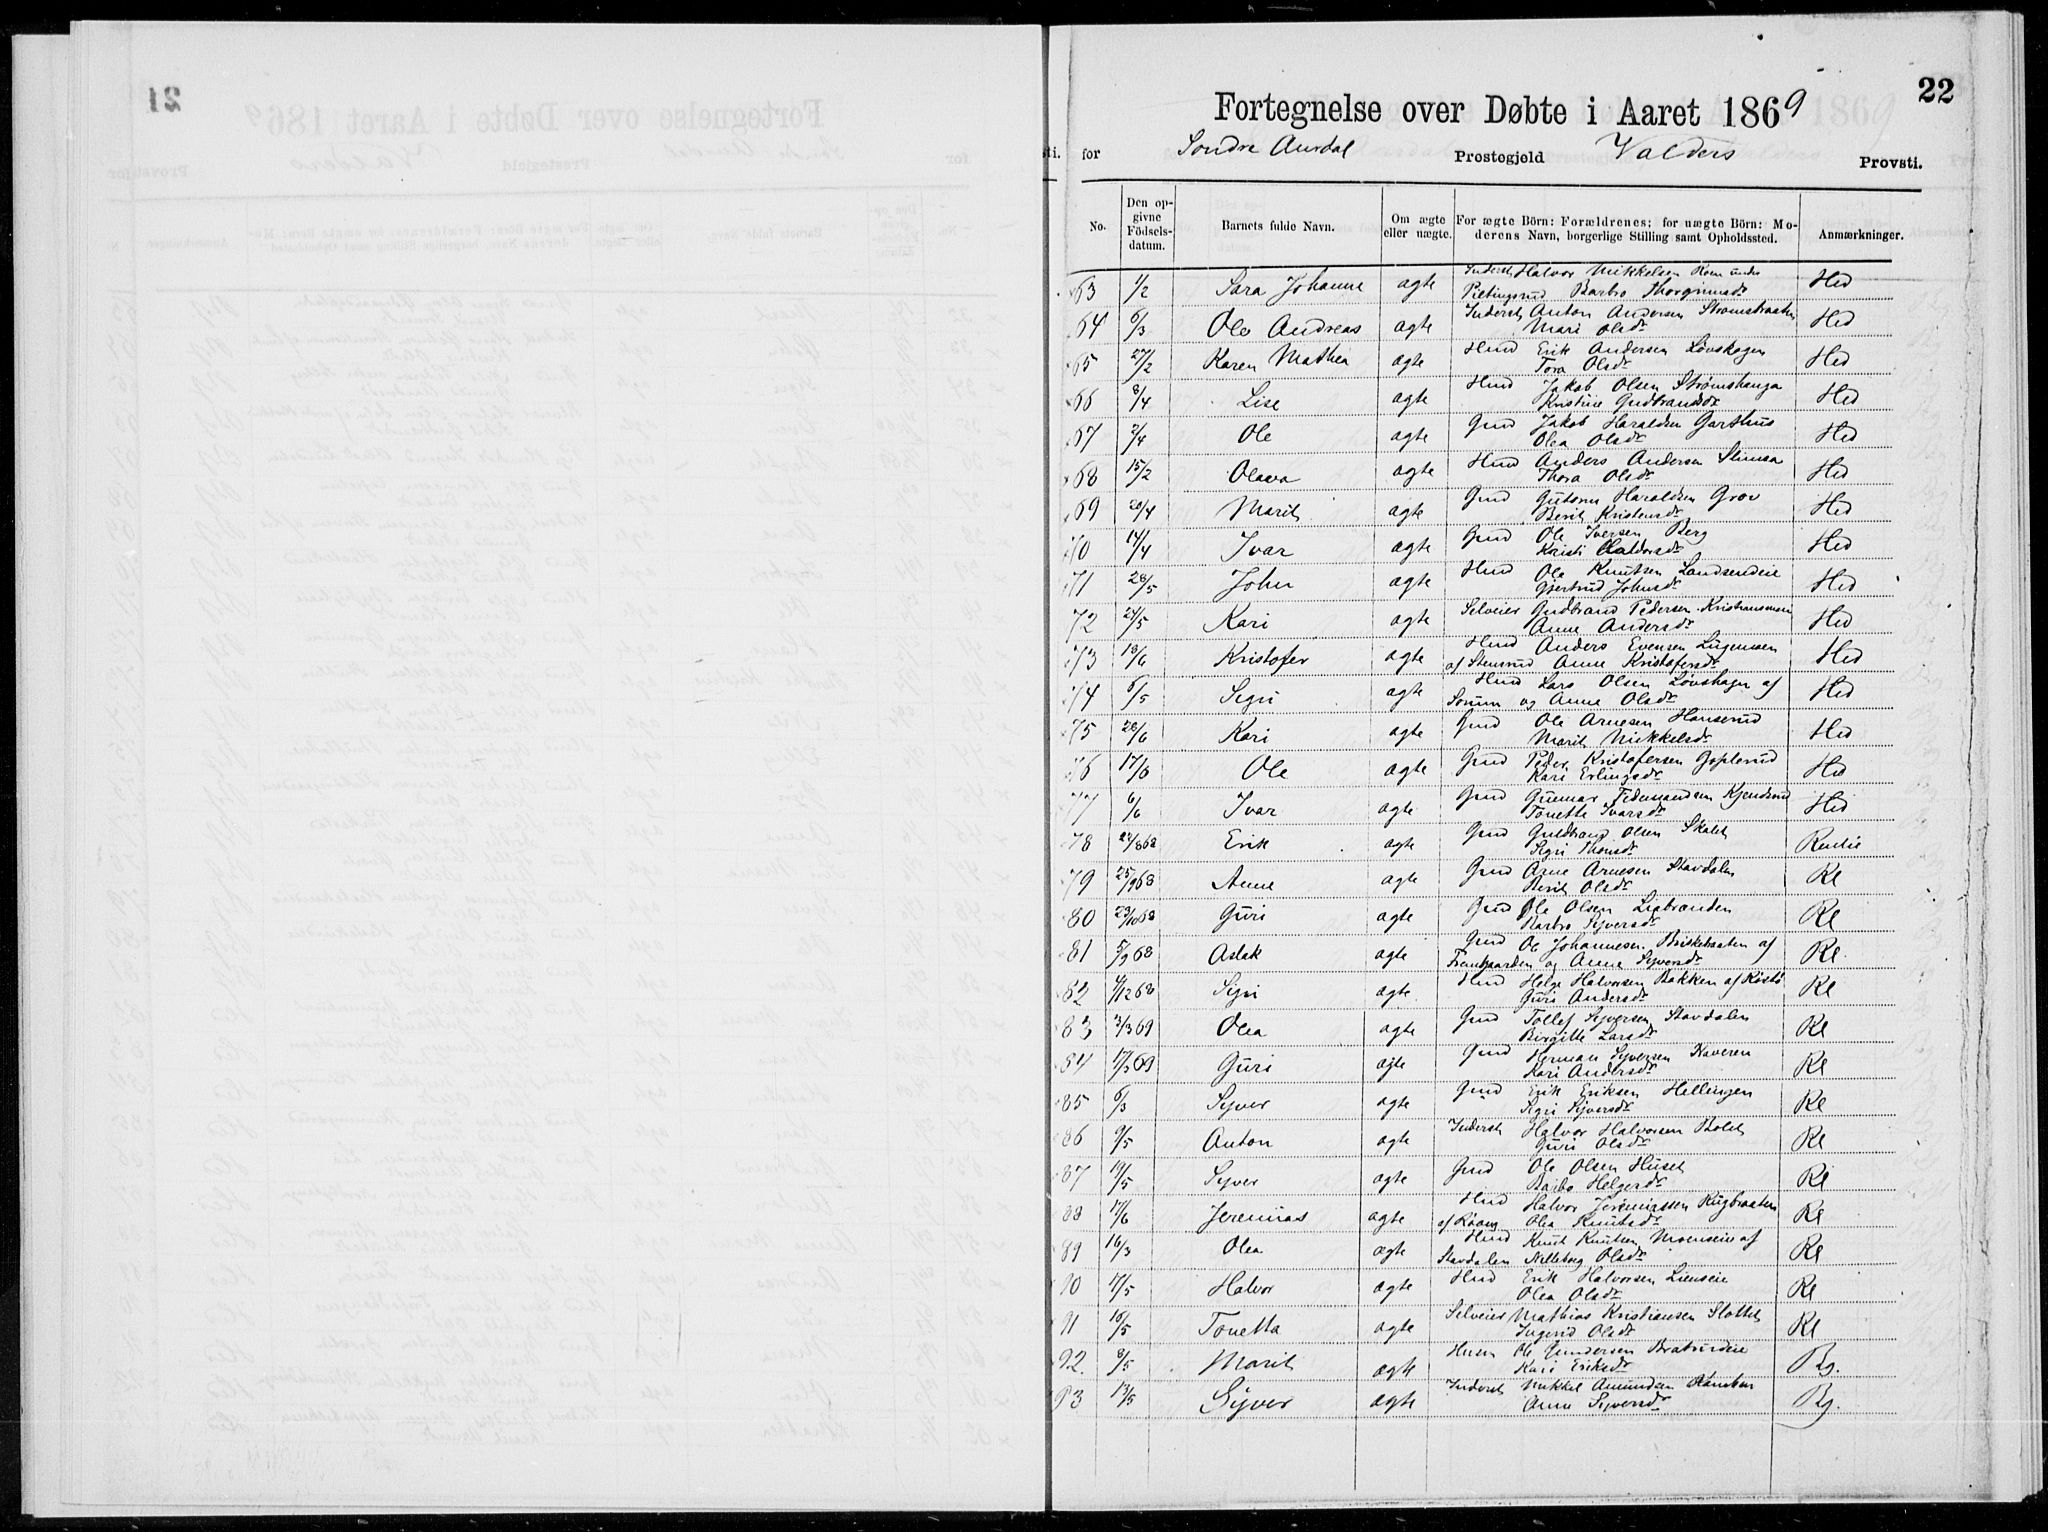 22
Fortegnelse over Døbte i Aaret 1869
for Søndre Aurdal Prestegjeld Valders Provsti.
No. Den opgivne Födselsdatum. Barnets fulde Navn. Om ægte eller uægte. For ægte Börn: Forældrenes; for uægte Börn: Moderens Navn, borgerlige Stilling samt Opholdssted. Anmærkninger.
63 1/2 Sara Johanne ægte Inderst Halvor Mikkelsen Rom under Hed
Barbro Thorgrimsdr
64 6/3 Ole Andreas ægte Inderst Anton Andersen Hed
Mari Olsdr
65 27/2 Karen Mathea ægte Hmd Erik Andersen Løvskogen Hed
Tora Olsdr
66 8/4 Lise ægte Hmd Jakob Olsen Strømshenga Hed
Kristine Gudbrandsdr
67 2/4 Ole ægte Gmd Jakob Haraldsen Garthus Hed
Olea Olsdr
68 15/2 Olava ægte Hmd Anders Andersen Hed
Thora Olsdr
69 20/4 Marit ægte Gmd Gutorm Haraldsen Grov Hed
Berit Kristensdr
70 14/4 Ivar ægte Gmd Ole Iversen Berg Hed
Kristi Halvorsdr
71 28/5 John ægte Hmd Ole Knutsen Landsendeie Hed
Gjertrud Johnsdr
72 24/5 Kari ægte Selveier Gudbrand Pedersen Hed
Anne Andersdr
73 18/6 Kristofer ægte Hmd Anders Evensen Hed
af Stensrud Anne Kristofersdr
74 6/5 Sigri ægte Hmd Lars Olsen Løvshagen af Hed
Sørum og Anne Olsdr
75 28/6 Kari ægte Gmd Ole Arnesen Hanserud Hed
Marit Mikkelsdr
76 17/6 Ole ægte Gmd Peder Kristofersen Goplerud Hed
Kari Erlingsdr
77 6/6 Ivar ægte Gmd Gunnar Hed
Tonette Ivarsdr
78 Erik ægte Gmd Guldbrand Olsen Skalet Renlie
Sigri Thomsdr
79 25/9 68 Anne ægte Gmd Arne Arnesen Stavdalen Rl
Berit Olsdr
80 29/10 68 Guri ægte Gmd Ole Olsen Ligbranden Rl
Barbro Syversdr
81 5/9 68 Aslak ægte Gmd Ole Johannesen Briskebraaten af Rl
Framgaarden og Anne Syversdr
82 4/12 68 Sigri ægte Hmd Helge Halvorsen Bakken af Rl
Guri Andersdr
83 3/3 69 Olea ægte Gmd Tollef Syversen Stavdalen Rl
Birgitte Larsdr
84 17/3 69 Guri ægte Gmd Herman Syversen Haveren Rl
Kari Andersdr
85 6/3 Syver ægte Gmd Erik Eriksen Hellingen Rl
Sigri Syversdr
86 9/5 Anton ægte Inderst Halvor Halvorsen Bølet Rl
Guri Olsdr
87 19/5 Syver ægte Gmd Ole Olsen Huset Rl
Barbo Helgesdr
88 17/6 Jeremias ægte Hmd Halvor Jeremiassen Rugbraaten Rl
Olea Knutsdr
89 16/3 Olea ægte Hmd Knut Knutsen Moenseie af Rl
Stavdalen Olsdr
90 17/5 Halvor ægte Hmd Erik Halvorsen Lienseie Rl
Olea Olsdr
91 10/5 Tonetta ægte Selveier Mathias Kristiansen Slottet Rl
Ingerid Olsdr
92. 8/5 Marit ægte Ole Gundersen Bg.
Kari Eriksdr
93 13/5 Syver ægte Inderst Mikkel Amundsen Bg.
Anne Syversdr
21